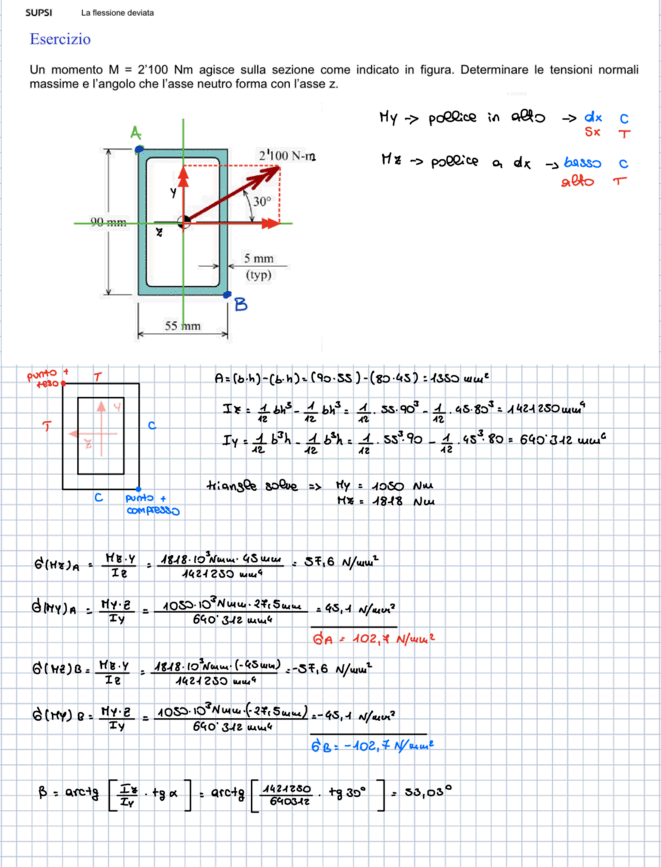 SUPSI La flessione deviata
Esercizio
Un momento M = 2'100 Nm agisce sulla sezione come indicato in figura. Determinare le tensioni normali
massime e l'angolo che l'asse neutro forma con l'asse z.
My -> pollice in alto -> dx C
sx T
Mz -> pollice a dx -> basso C
alto T
A
2'100 N-m
y
30°
90 mm
z
5 mm
(typ)
B
55 mm
punto +
teso
T
A = (b·h)-(b·h) = (90·55)-(80·45) = 1350 mm²
Iz = 1/12 bh³ - 1/12 bh³ = 1/12 · 55·90³ - 1/12 · 45·80³ = 1421250 mm⁴
T
y
z
C
Iy = 1/12 b³h - 1/12 b³h = 1/12 · 55³·90 - 1/12 · 45³·80 = 640'312 mm⁴
triangle solve => My = 1050 Nm
Mz = 1818 Nm
C
punto +
compresso
σ(Mz)A = Mz·y/Iz = 1818·10³Nmm·45mm/1421250 mm⁴ = 57,6 N/mm²
σ(My)A = My·z/Iy = 1050·10³Nmm·27,5mm/640'312 mm⁴ = 45,1 N/mm²
σA = 102,7 N/mm²
σ(Mz)B = Mz·y/Iz = 1818·10³Nmm·(-45mm)/1421250 mm⁴ = -57,6 N/mm²
σ(My)B = My·z/Iy = 1050·10³Nmm·(-27,5mm)/640'312 mm⁴ = -45,1 N/mm²
σB = -102,7 N/mm²
β = arctg [Iz/Iy · tg α] = arctg [1421250/640312 · tg 30°] = 53,03°